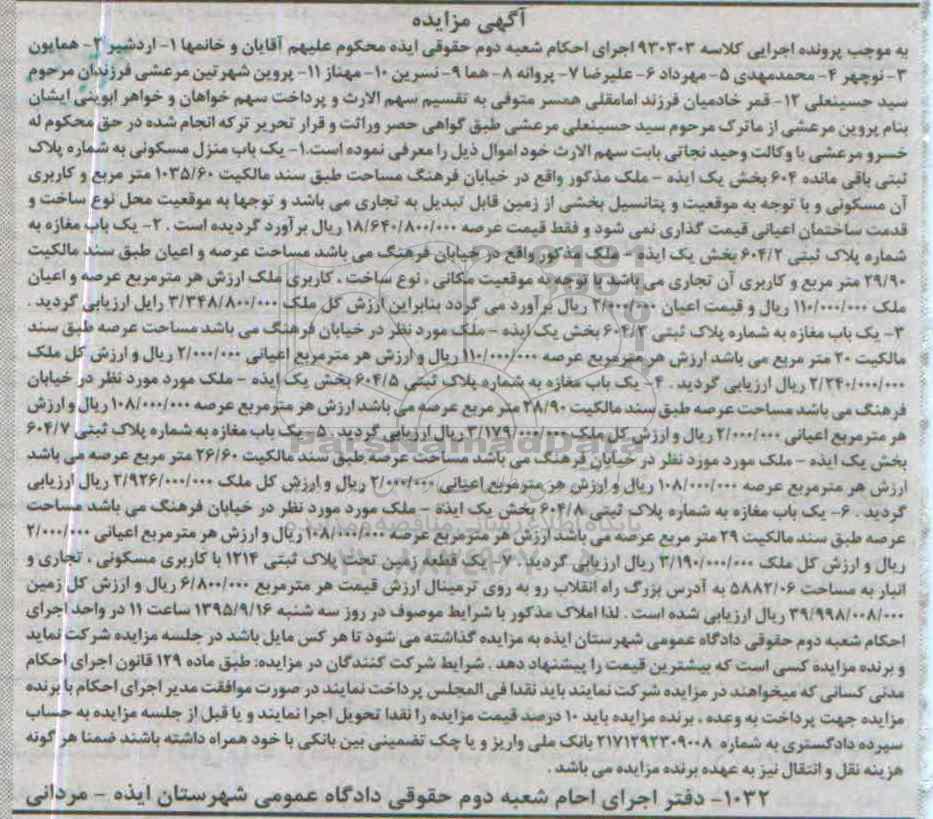 آگهی مزایده
به موجب پرونده اجرایی کلاسه ۹۳۰۳۰۳ اجرای احکام شعبه دوم حقوقی ایذه محکوم علیهم آقایان و خانمها ۱- اردشیر ۲- همایون
۳- نوچهر ۴- محمدمهدی ۵- مهرداد ۶- علیرضا ۷- پروانه ۸- هما ۹- نسرین ۱۰- مهناز ۱۱- پروین شهرتین مرعشی فرزندان مرحوم
سید حسینعلی ۱۲- قمر خادمیان فرزند امامقلی همسر متوفی به تقسیم سهم الارث و پرداخت سهم خواهان و خواهر ابوینی ایشان
بنام پروین مرعشی از ماترک مرحوم سید حسینعلی مرعشی طبق گواهی حصر وراثت و قرار تحریر ترکه انجام شده در حق محکوم له
خسرو مرعشی با وکالت وحید نجاتی بابت سهم الارث خود اموال ذیل را معرفی نموده است.۱- یک باب منزل مسکونی به شماره پلاک
ثبتی باقی مانده ۶۰۴ بخش یک ایذه – ملک مذکور واقع در خیابان فرهنگ مساحت طبق سند مالکیت ۱۰۳۵/۶۰ متر مربع و کاربری
آن مسکونی و با توجه به موقعیت و پتانسیل بخشی از زمین قابل تبدیل به تجاری می باشد و توجها به موقعیت محل نوع ساخت و
قدمت ساختمان اعیانی قیمت گذاری نمی شود و فقط قیمت عرصه ۱۸/۶۴۰/۸۰۰/۰۰۰ ریال برآورد گردیده است . ۲- یک باب مغازه به
شماره پلاک ثبتی ۶۰۴/۲ بخش یک ایذه – ملک مذکور واقع در خیابان فرهنگ می باشد مساحت عرصه و اعیان طبق سند مالکیت
۲۹/۹۰ متر مربع و کاربری آن تجاری می باشد. با توجه به موقعیت مکانی ، نوع ساخت ، کاربری ملک ارزش هر مترمربع عرصه و اعیان
ملک ۱۱۰/۰۰۰/۰۰۰ ریال و قیمت اعیان ۲/۰۰۰/۰۰۰ ریال برآورد می گردد بنابراین ارزش کل ملک ۳/۳۴۸/۸۰۰/۰۰۰ رایل ارزیابی گردید .
۳- یک باب مغازه به شماره پلاک ثبتی ۶۰۴/۳ بخش یک ایذه – ملک مورد نظر در خیابان فرهنگ می باشد مساحت عرصه طبق سند
مالکیت ۲۰ متر مربع می باشد ارزش هر مترمربع عرصه ۱۱۰/۰۰۰/۰۰۰ ریال و ارزش هر مترمربع اعیانی ۲/۰۰۰/۰۰۰ ریال و ارزش کل ملک
۲/۲۴۰/۰۰۰/۰۰۰ ریال ارزیابی گردید . ۴- یک باب مغازه به شماره پلاک ثبتی ۶۰۴/۵ بخش یک ایذه – ملک مورد مورد نظر در خیابان
فرهنگ می باشد مساحت عرصه طبق سند مالکیت ۲۸/۹۰ متر مربع عرصه می باشد ارزش هر مترمربع عرصه ۱۰۸/۰۰۰/۰۰۰ ریال و ارزش
هر مترمربع اعیانی ۲/۰۰۰/۰۰۰ ریال و ارزش کل ملک ۳/۱۷۹/۰۰۰/۰۰۰ ریال ارزیابی گردید . ۵- یک باب مغازه به شماره پلاک ثبتی ۶۰۴/۷
بخش یک ایذه – ملک مورد مورد نظر در خیابان فرهنگ می باشد مساحت عرصه طبق سند مالکیت ۲۶/۶۰ متر مربع عرصه می باشد
ارزش هر مترمربع عرصه ۱۰۸/۰۰۰/۰۰۰ ریال و ارزش هر مترمربع اعیانی ۲/۰۰۰/۰۰۰ ریال و ارزش کل ملک ۲/۹۲۶/۰۰۰/۰۰۰ ریال ارزیابی
گردید . ۶- یک باب مغازه به شماره پلاک ثبتی ۶۰۴/۸ بخش یک ایذه – ملک مورد مورد نظر در خیابان فرهنگ می باشد مساحت
عرصه طبق سند مالکیت ۲۹ متر مربع عرصه می باشد ارزش هر مترمربع عرصه ۱۰۸/۰۰۰/۰۰۰ ریال و ارزش هر مترمربع اعیانی ۲/۰۰۰/۰۰۰
ریال و ارزش کل ملک ۳/۱۹۰/۰۰۰/۰۰۰ ریال ارزیابی گردید. ۷- یک قطعه زمین تحت پلاک ثبتی ۱۲۱۴ با کاربری مسکونی ، تجاری و
انبار به مساحت ۵۸۸۲/۰۶ به آدرس بزرگ راه انقلاب رو به روی ترمینال ارزش قیمت هر مترمربع ۶/۸۰۰/۰۰۰ ریال و ارزش کل زمین
۳۹/۹۹۸/۰۰۸/۰۰۰ ریال ارزیابی شده است . لذا املاک مذکور با شرایط موصوف در روز سه شنبه ۱۳۹۵/۹/۱۶ ساعت ۱۱ در واحد اجرای
احکام شعبه دوم حقوقی دادگاه عمومی شهرستان ایذه به مزایده گذاشته می شود تا هر کس مایل باشد در جلسه مزایده شرکت نماید
و برنده مزایده کسی است که بیشترین قیمت را پیشنهاد دهد . شرایط شرکت کنندگان در مزایده: طبق ماده ۱۲۹ قانون اجرای احکام
مدنی کسانی که میخواهند در مزایده شرکت نمایند باید نقدا فی المجلس پرداخت نمایند در صورت موافقت مدیر اجرای احکام با برنده
مزایده جهت پرداخت به وعده ، برنده مزایده باید ۱۰ درصد قیمت مزایده را نقدا تحویل اجرا نمایند و یا قبل از جلسه مزایده به حساب
سپرده دادگستری به شماره ۲۱۷۱۲۹۲۳۰۹۰۰۸ بانک ملی واریز و یا چک تضمینی بین بانکی با خود همراه داشته باشند ضمنا هر گونه
هزینه نقل و انتقال نیز به عهده برنده مزایده می باشد .
۱۰۳۲- دفتر اجرای احام شعبه دوم حقوقی دادگاه عمومی شهرستان ایذه – مردانی
ParsNamadData
پایگاه اطلاع رسانی مناقصه و مزایده